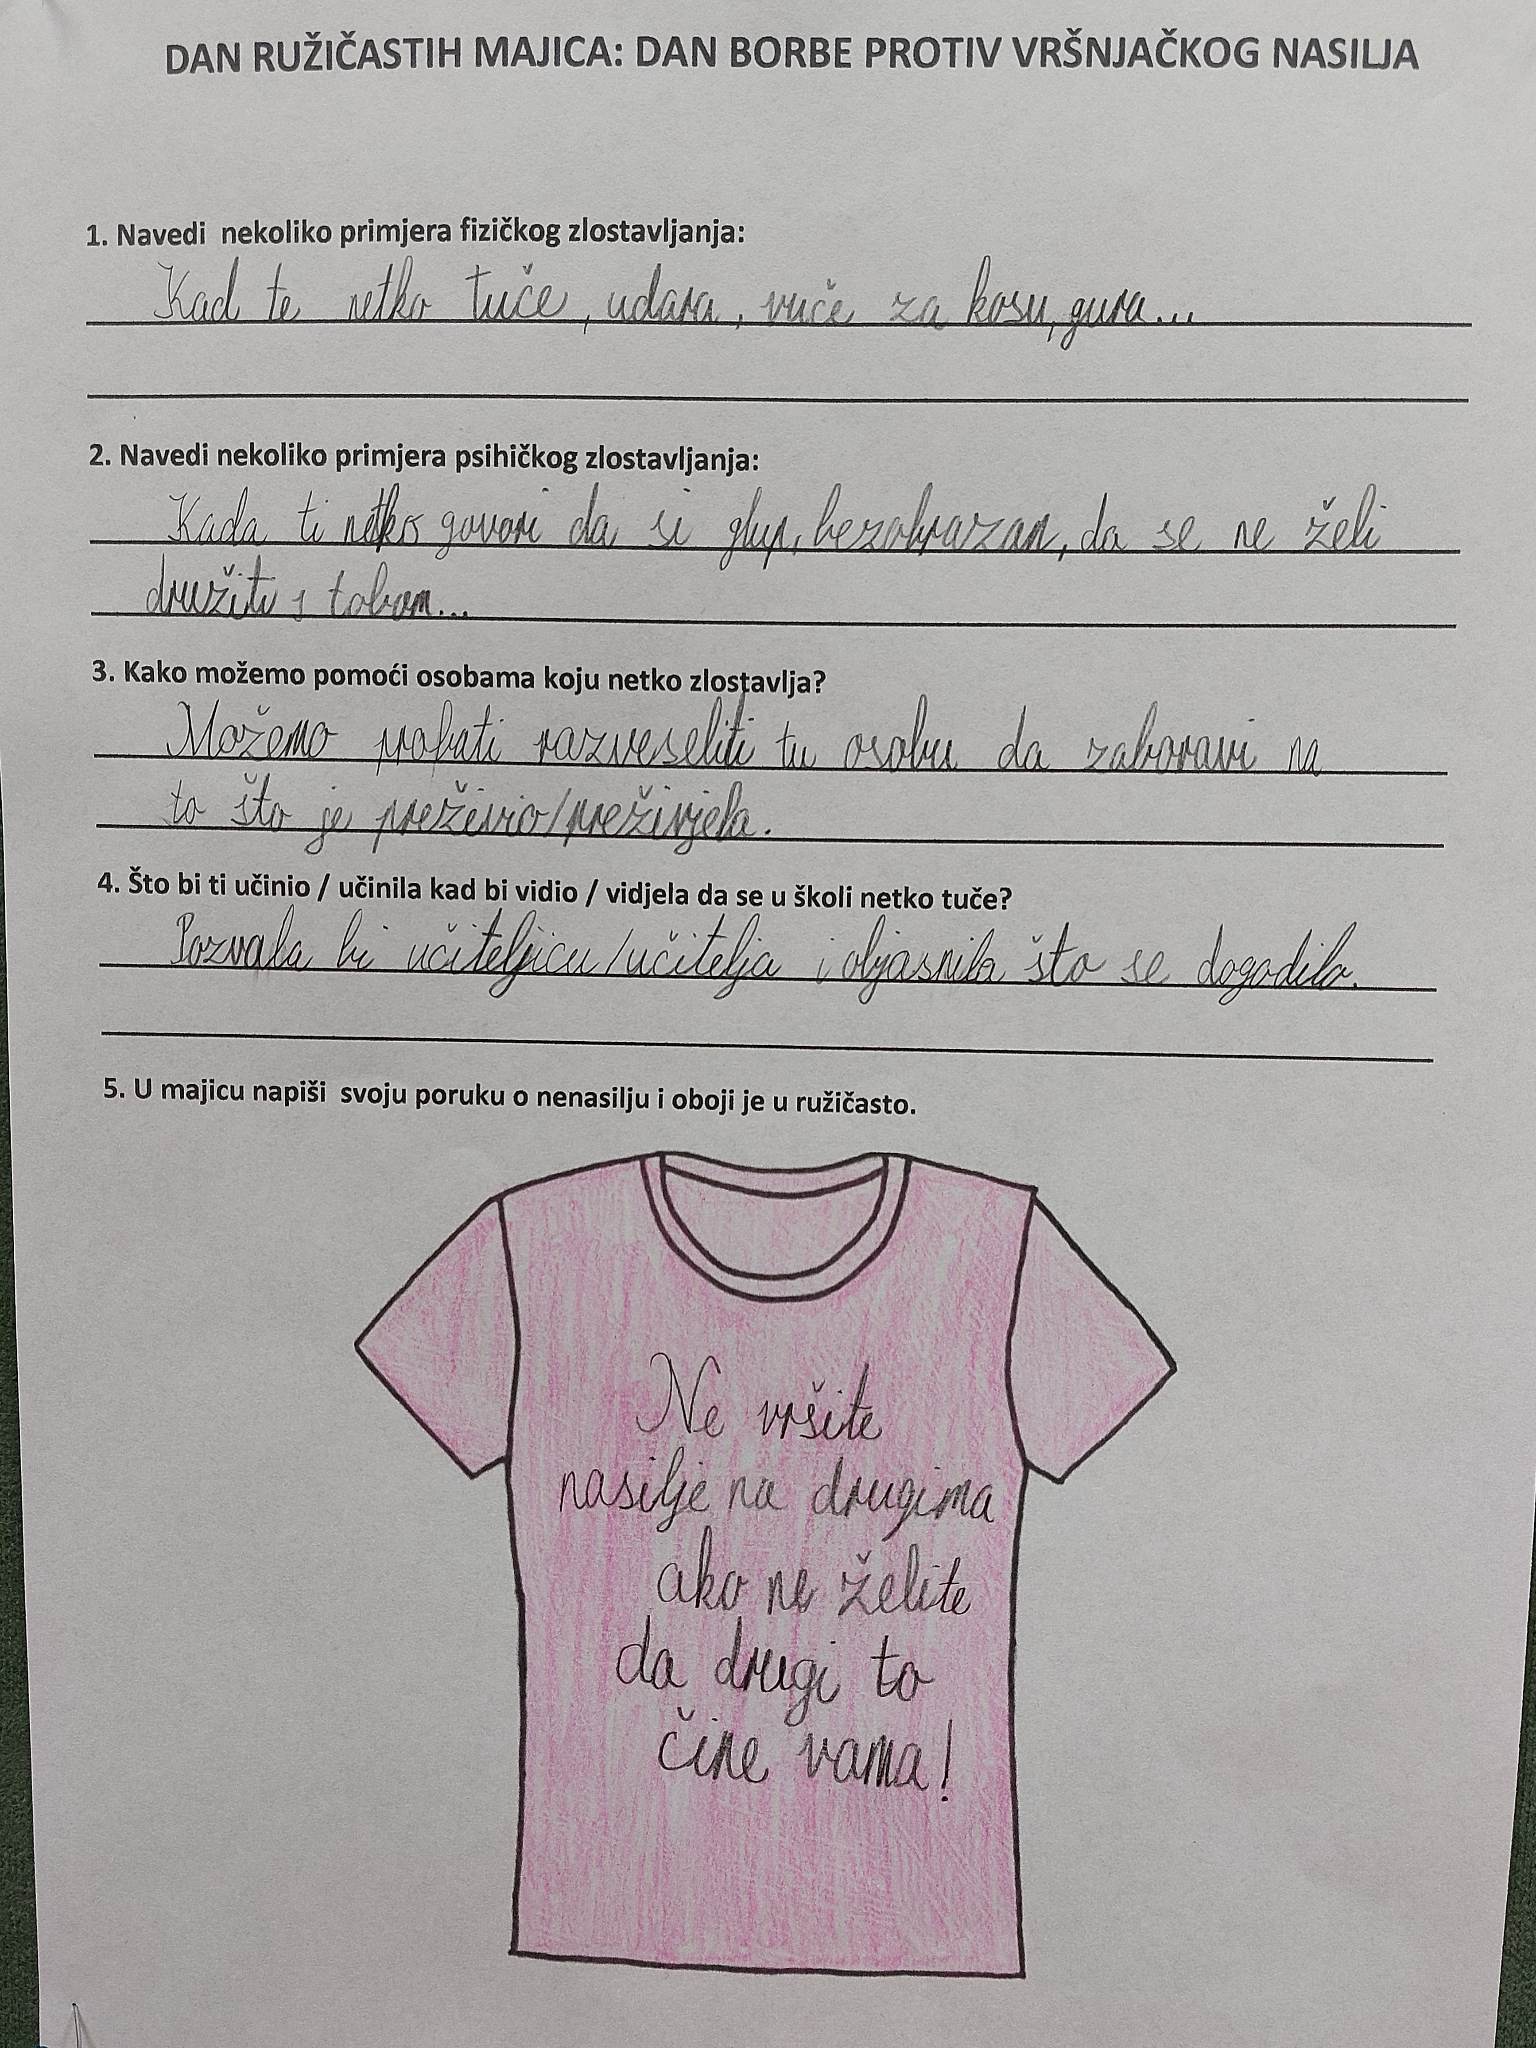 DAN RUŽIČASTIH MAJICA: DAN BORBE PROTIV VRŠNJAČKOG NASILJA
1. Navedi nekoliko primjera fizičkog zlostavljanja:
Kad te netko tuče, udara, vuče za kosu, gura...
2. Navedi nekoliko primjera psihičkog zlostavljanja:
Kada ti netko govori da si glup, bezobrazan, da se ne želi
družiti s tobom...
3. Kako možemo pomoći osobama koju netko zlostavlja?
Možemo probati razveseliti tu osobu da zaboravi na
to što je preživio/preživjela.
4. Što bi ti učinio / učinila kad bi vidio / vidjela da se u školi netko tuče?
Pozvala bi učiteljicu/učitelja i objasnila što se dogodilo.
5. U majicu napiši svoju poruku o nenasilju i oboji je u ružičasto.
Ne vršite
nasilje na drugima
ako ne želite
da drugi to
čine vama!